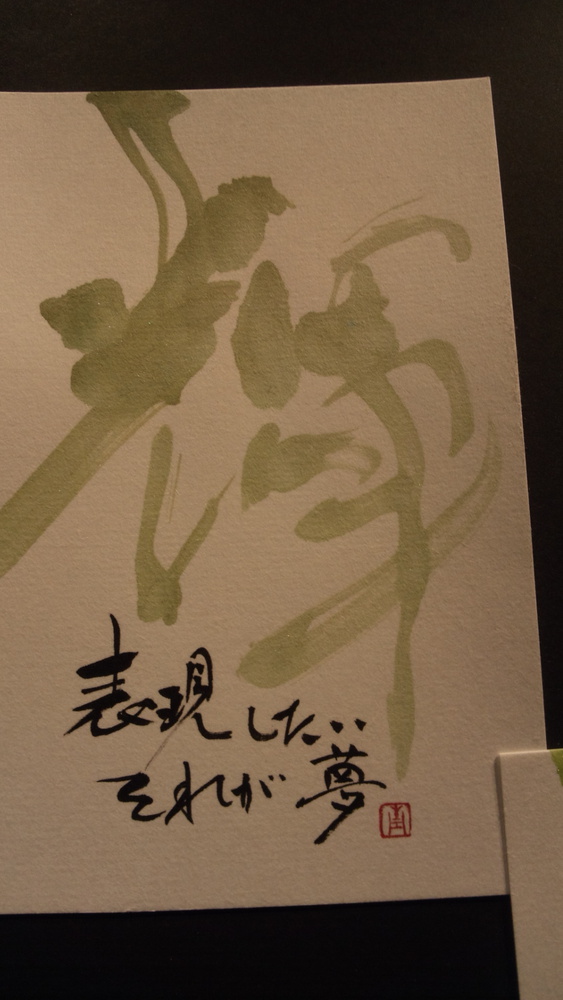 輝
表現したい
それが夢